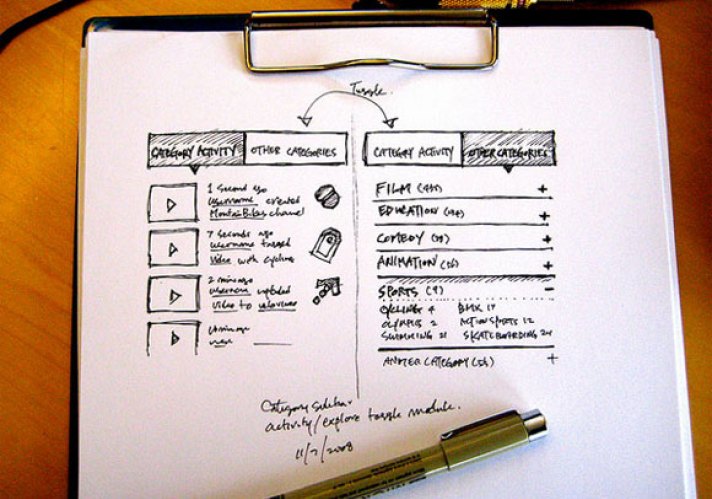 Toggle
CATEGORY ACTIVITY
OTHER CATEGORIES
1 second ago
username created
MountainBikes channel
7 seconds ago
username tagged
video with cycling
2 min ago
username uploaded
video to
min ago
user
CATEGORY ACTIVITY
OTHER CATEGORIES
FILM +
EDUCATION +
COMEDY +
ANIMATION +
SPORTS (9) -
CYCLING 4 BMX 17
OLYMPICS 2 ACTION SPORTS 12
SWIMMING 21 SKATEBOARDING 24
CATEGORY +
Category sidebar
activity/explore toggle module.
11/7/2008